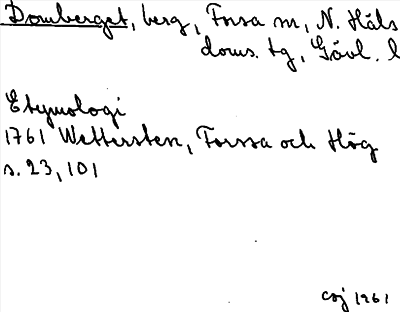 Domberget, berg, Forsa sn, N. Häls
doms. tg, Gävl. l
Etymologi
1761 Wettersten, Forssa och Hög
s. 23, 101
CEJ 1961